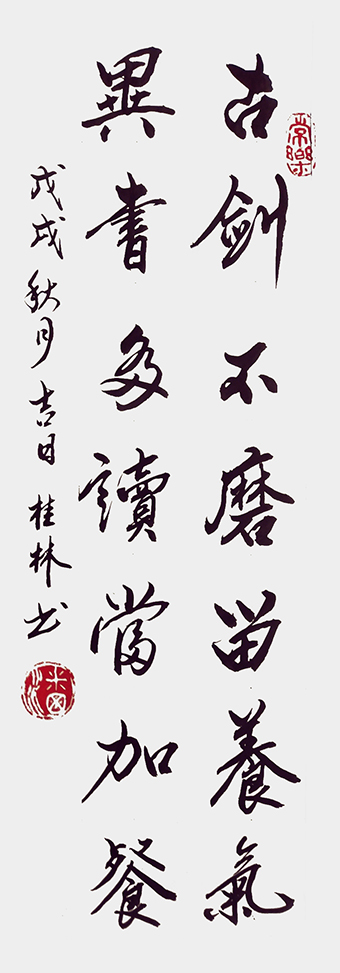 古劍不磨留養氣
異書多讀當加餐
戊戌秋月吉日桂林书
常樂